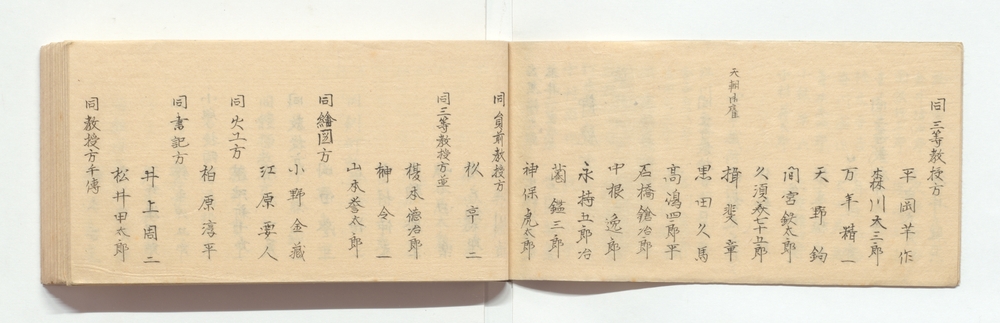 同三等教授方
平岡芋作
森川大三郎
万年精一
天野鈞
間宮鉄太郎
久須美六十五郎
揖斐章
天朝御雇
黒田久馬
高島四郎平
石橋鎗次郎
中根逸郎
永持五郎治
薗鑑三郎
神保虎太郎
同員前教授方
杦亨二
同三等教授方並
榎本徳次郎
榊令一
山本誉太郎
同繪図方
小野金蔵
江原要人
同火工方
柏原淳平
同書記方
井上周二
同教授方手傳
松井甲太郎